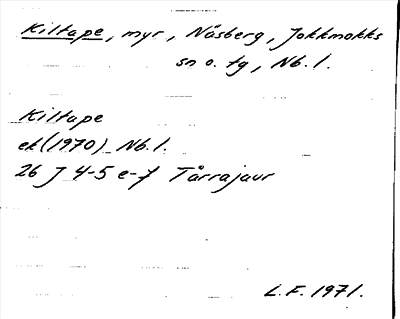 Kiltape, myr, Näsberg, Jokkmokks
sn o. tg, Nb. l.
Kiltape
ek (1970) Nb. l.
26 J 4-5 e-f Tårrajaur
L.F. 1971.